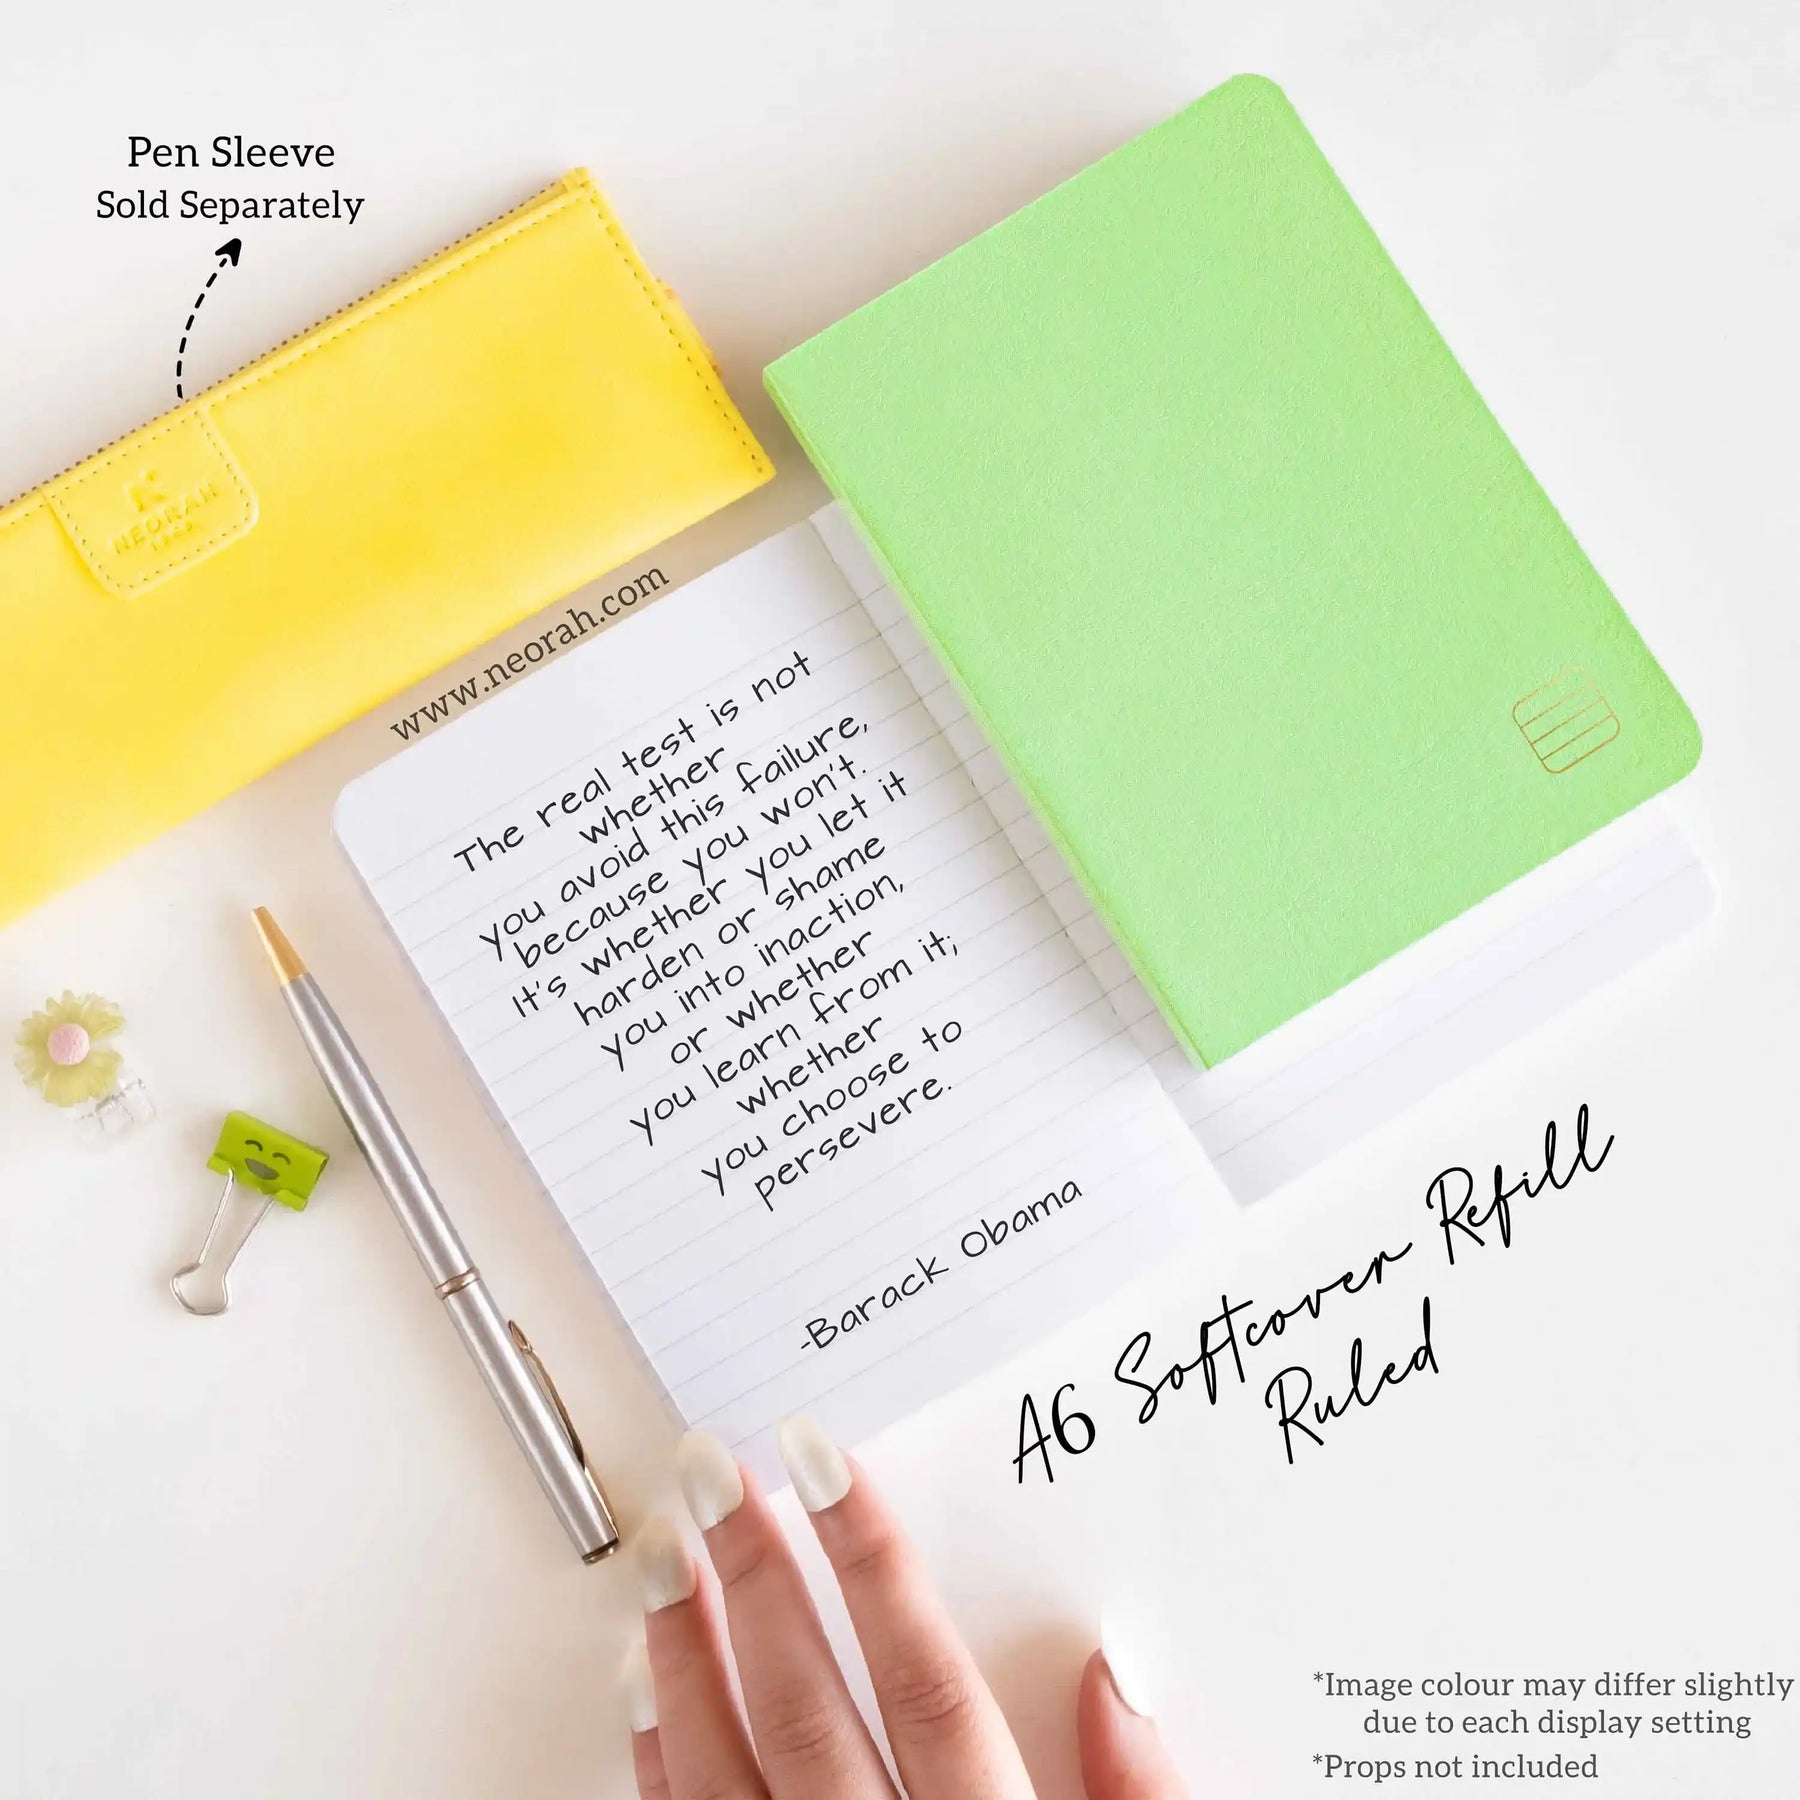 Pen Sleeve
Sold Separately
NEORAH
www.neorah.com
The real test is not
whether
you avoid this failure,
because you won't.
It's whether you let it
harden or shame
you into inaction,
or whether
you learn from it;
whether
you choose to
persevere.
-Barack Obama
A6 Softcover Refill
Ruled
*Image colour may differ slightly
due to each display setting
*Props not included